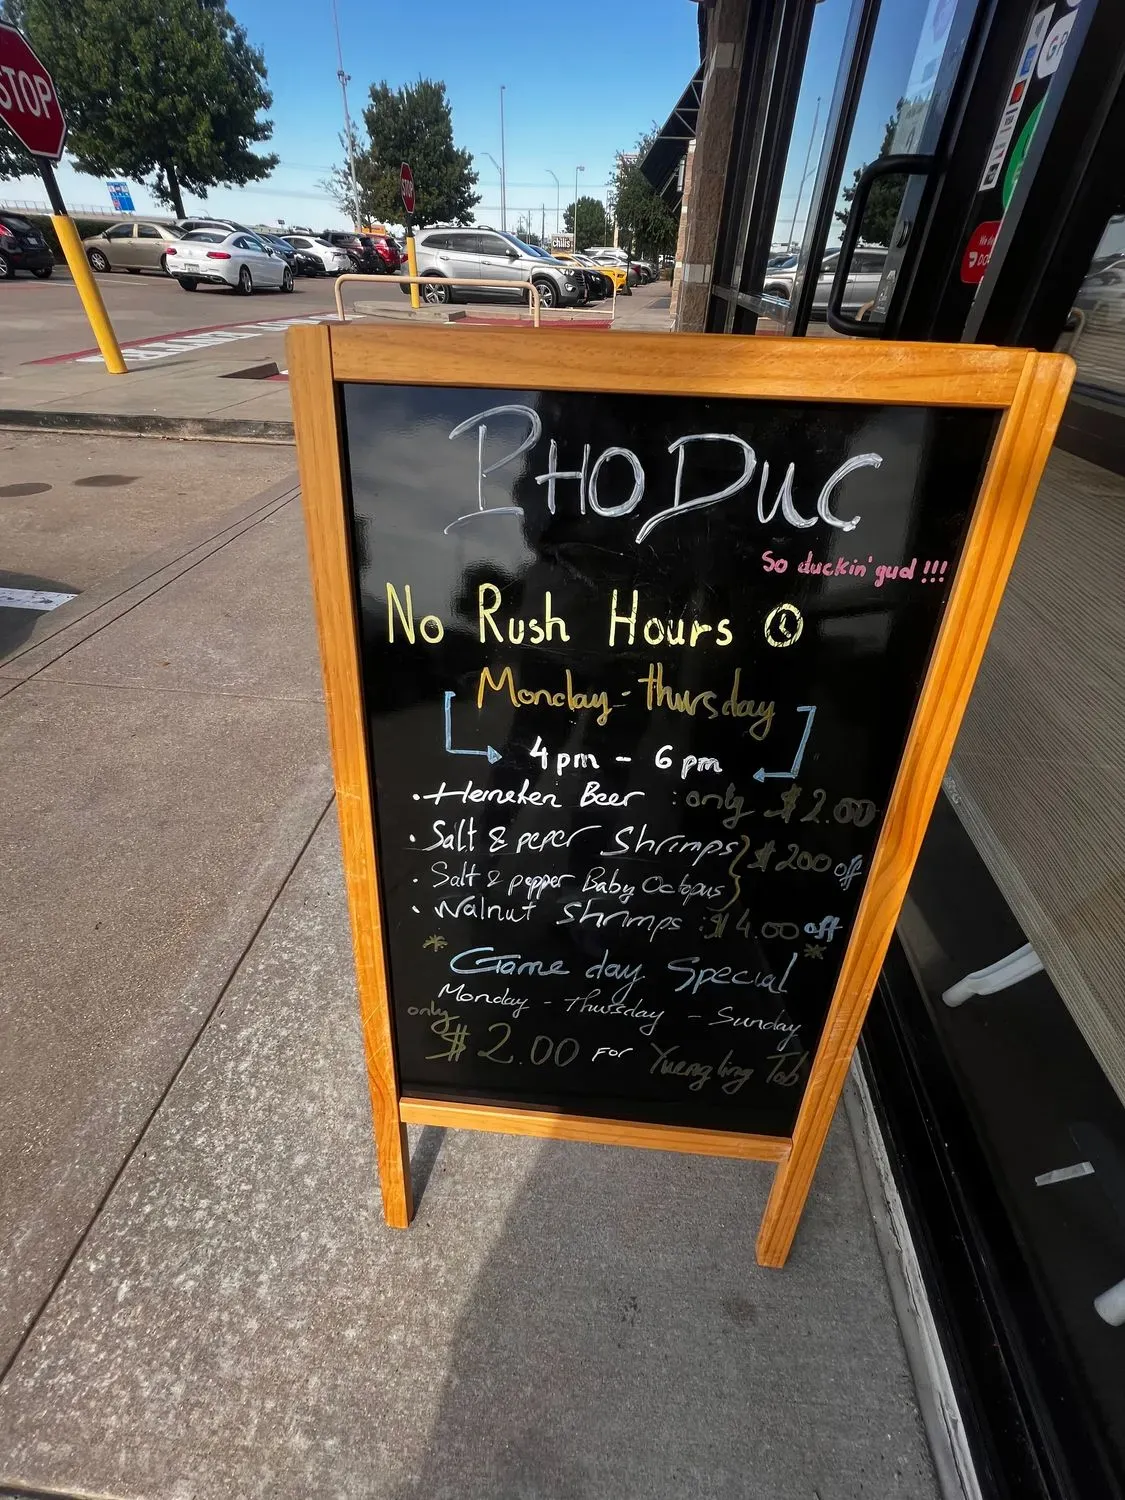 STOP
STOP
chili's
PHO DUC
So duckin' gud !!!
No Rush Hours
Monday - thursday
4pm - 6pm
• Heineken Beer : only $2.00
• Salt & peper Shrimps
• Salt & pepper Baby Octopus } $200 off
• Walnut Shrimps : $4.00 off
* Game day Special *
Monday - thursday - Sunday
only $2.00 FOR Yuengling Tab